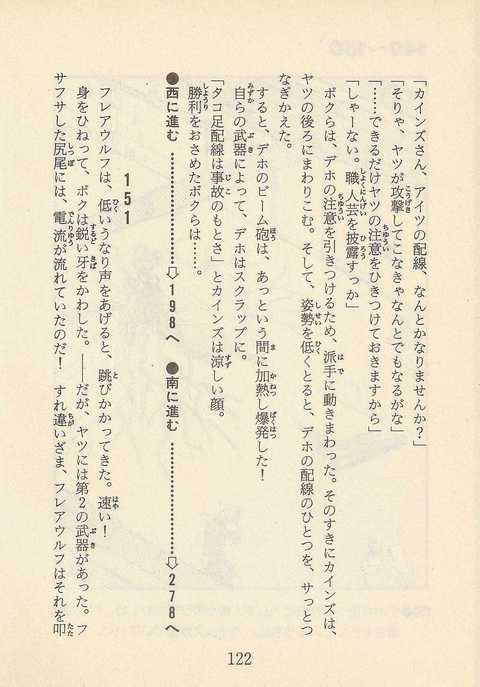 「カインズさん、アイツの配線、なんとかなりませんか?」
「そりゃ、ヤツが攻撃してこなきゃなんとでもなるがな」
「……できるだけヤツの注意をひきつけておきますから」
「しゃーない。職人芸を披露すっか」
ボクらは、デホの注意を引きつけるため、派手に動きまわった。そのすきにカインズは、
ヤツの後ろにまわりこむ。そして、姿勢を低くとると、デホの配線のひとつを、サっとつ
なぎかえた。
すると、デホのビーム砲は、あっという間に加熱し爆発した!
自らの武器によって、デホはスクラップに。
「タコ足配線は事故のもとさ」とカインズは涼しい顔。
勝利をおさめたボクらは……。
●西に進む…………⇨198へ ●南に進む…………⇨278へ
151
フレアウルフは、低いうなり声をあげると、跳びかかってきた。速い!
身をひねって、ボクは鋭い牙をかわした。——だが、ヤツには第2の武器があった。フ
サフサした尻尾には、電流が流れていたのだ! すれ違いざま、フレアウルフはそれを叩
122